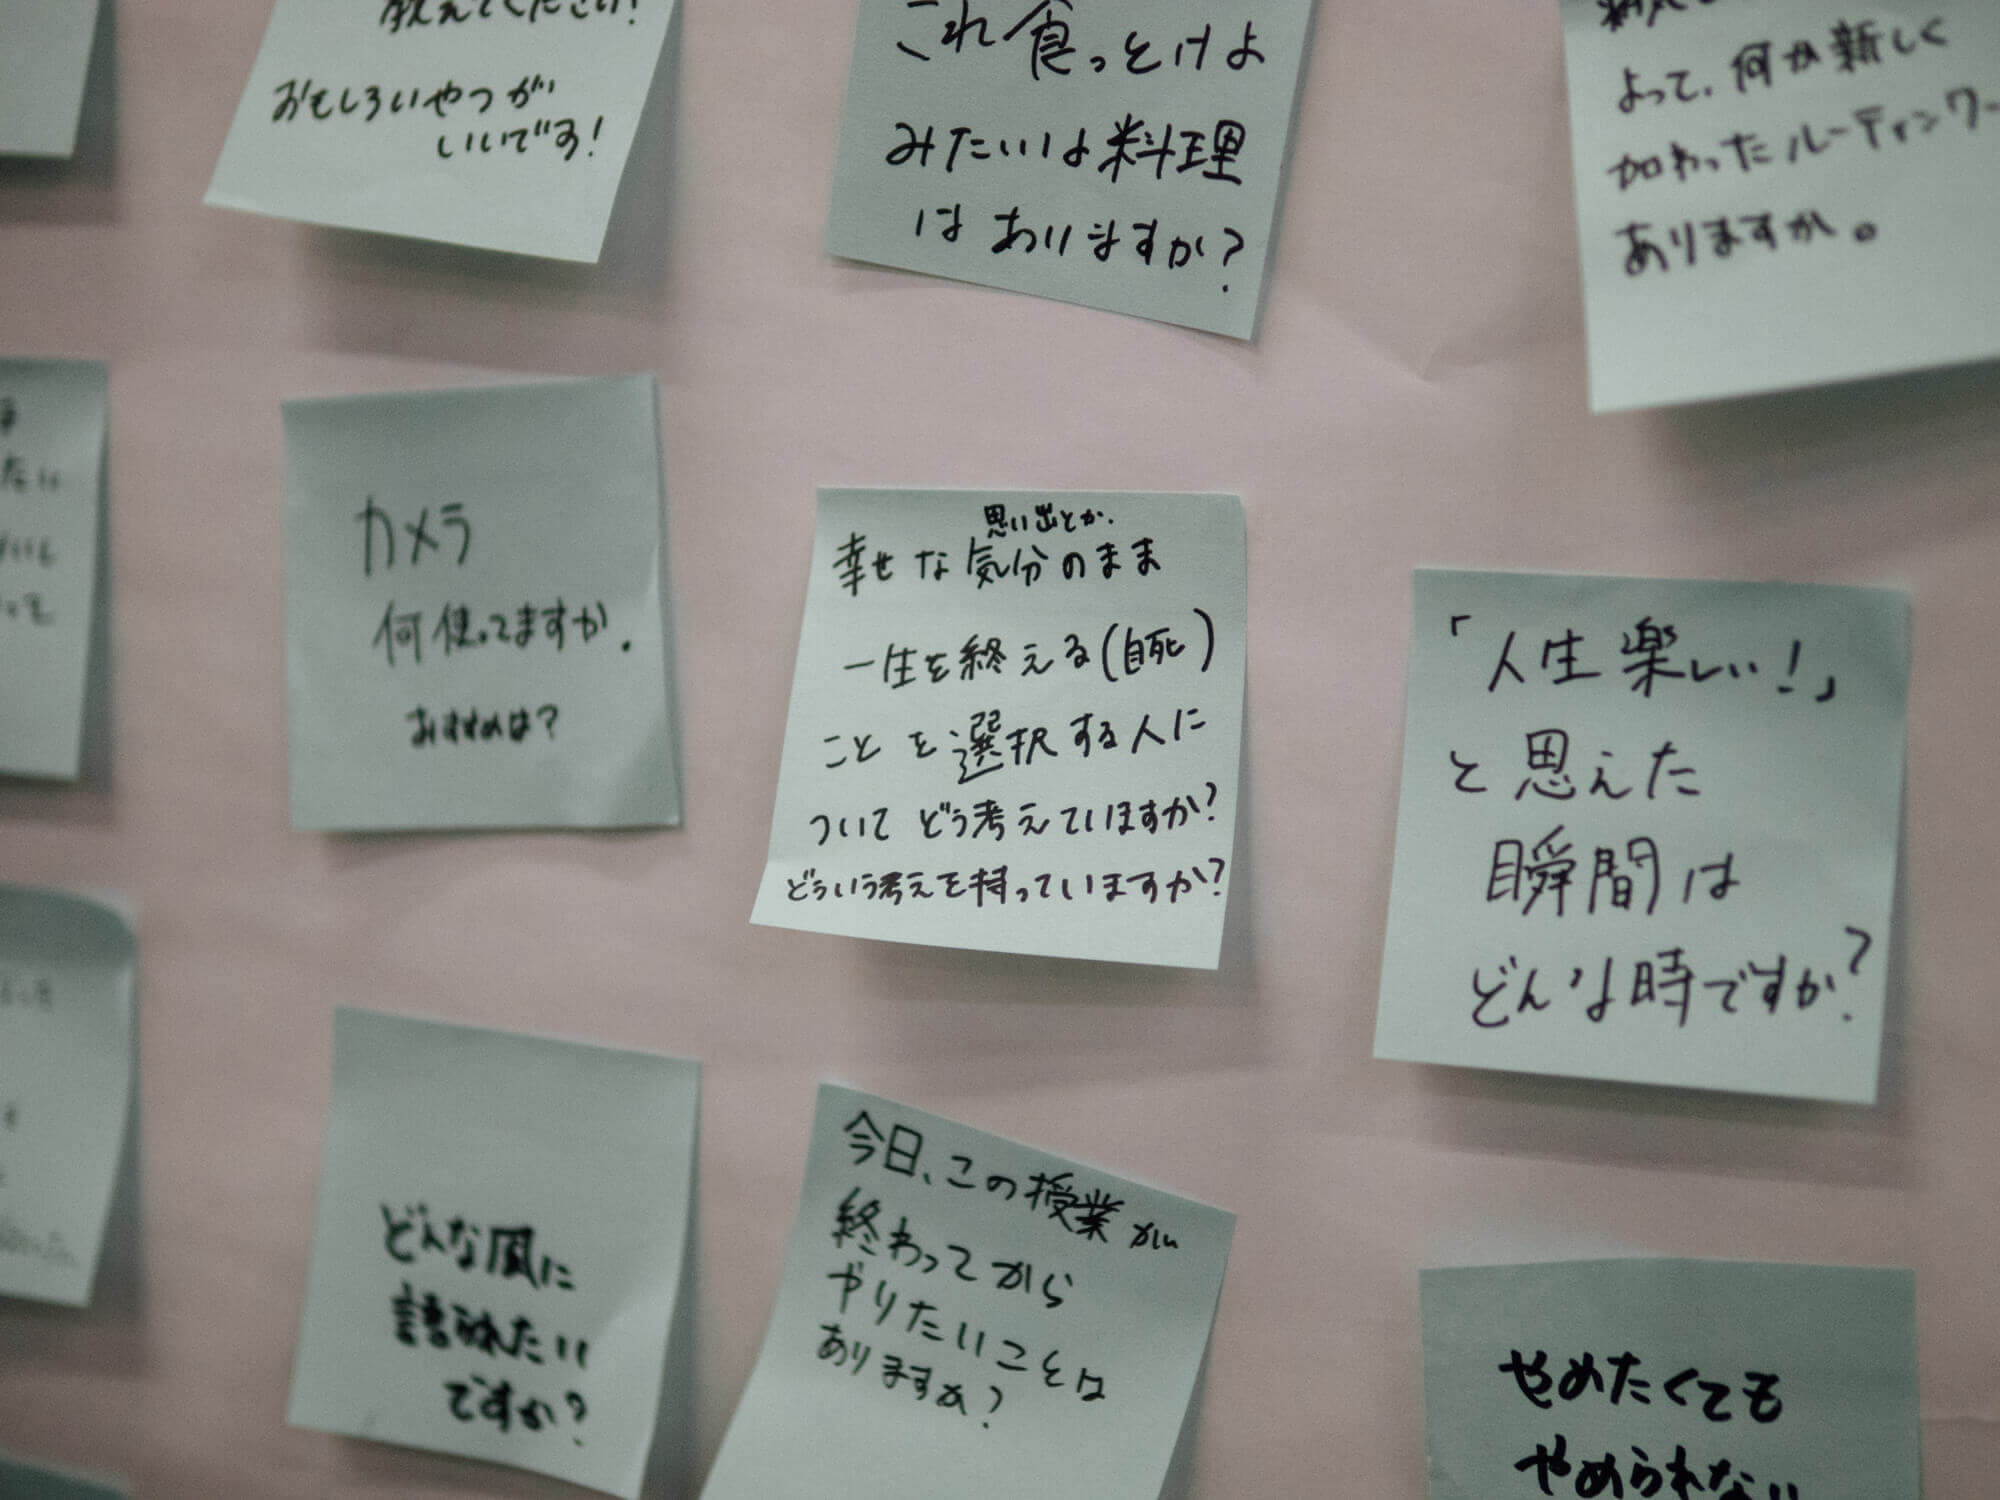 教えてください!
おもしろいやつが
いいです!
これ食っとけよ
みたいな料理
はありますか?
よって、何か新しく
加わったルーティンワー
ありますか。
カメラ
何使ってますか.
おすすめは?
思い出とか.
幸せな気分のまま
一生を終える(自死)
ことを選択する人に
ついてどう考えていますか?
どういう考えを持っていますか?
「人生楽しい!」
と思えた
瞬間は
どんな時ですか?
どんな風に
誘われたい
ですか?
今日、この授業が
終わってから
やりたいことは
ありますか?
やめたくても
やめられない